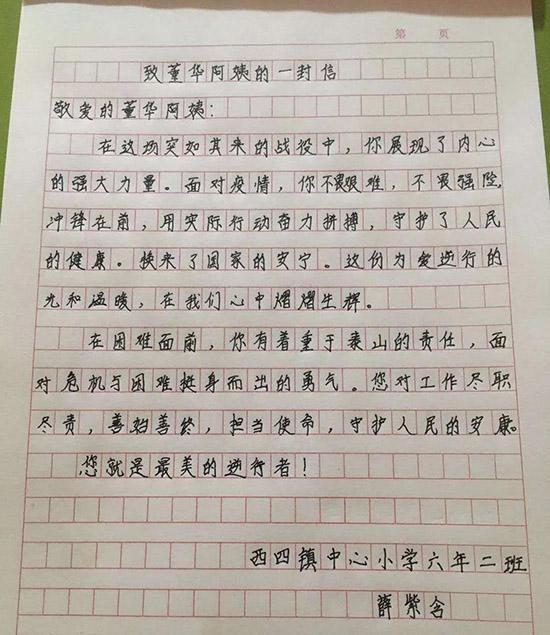 第 页
致董华阿姨的一封信
敬爱的董华阿姨:
在这场突如其来的战役中,你展现了内心
的强大力量。面对疫情,你不畏艰难,不畏强险,
冲锋在前,用实际行动奋力拼搏,守护了人民
的健康。换来了国家的安宁。这份为爱逆行的
光和温暖,在我们心中熠熠生辉。
在困难面前,你有着重于泰山的责任,面
对危机与困难挺身而出的勇气。您对工作尽职
尽责,善始善终,担当使命,守护人民的安康。
您就是最美的逆行者!
西四镇中心小学六年二班
薛紫含